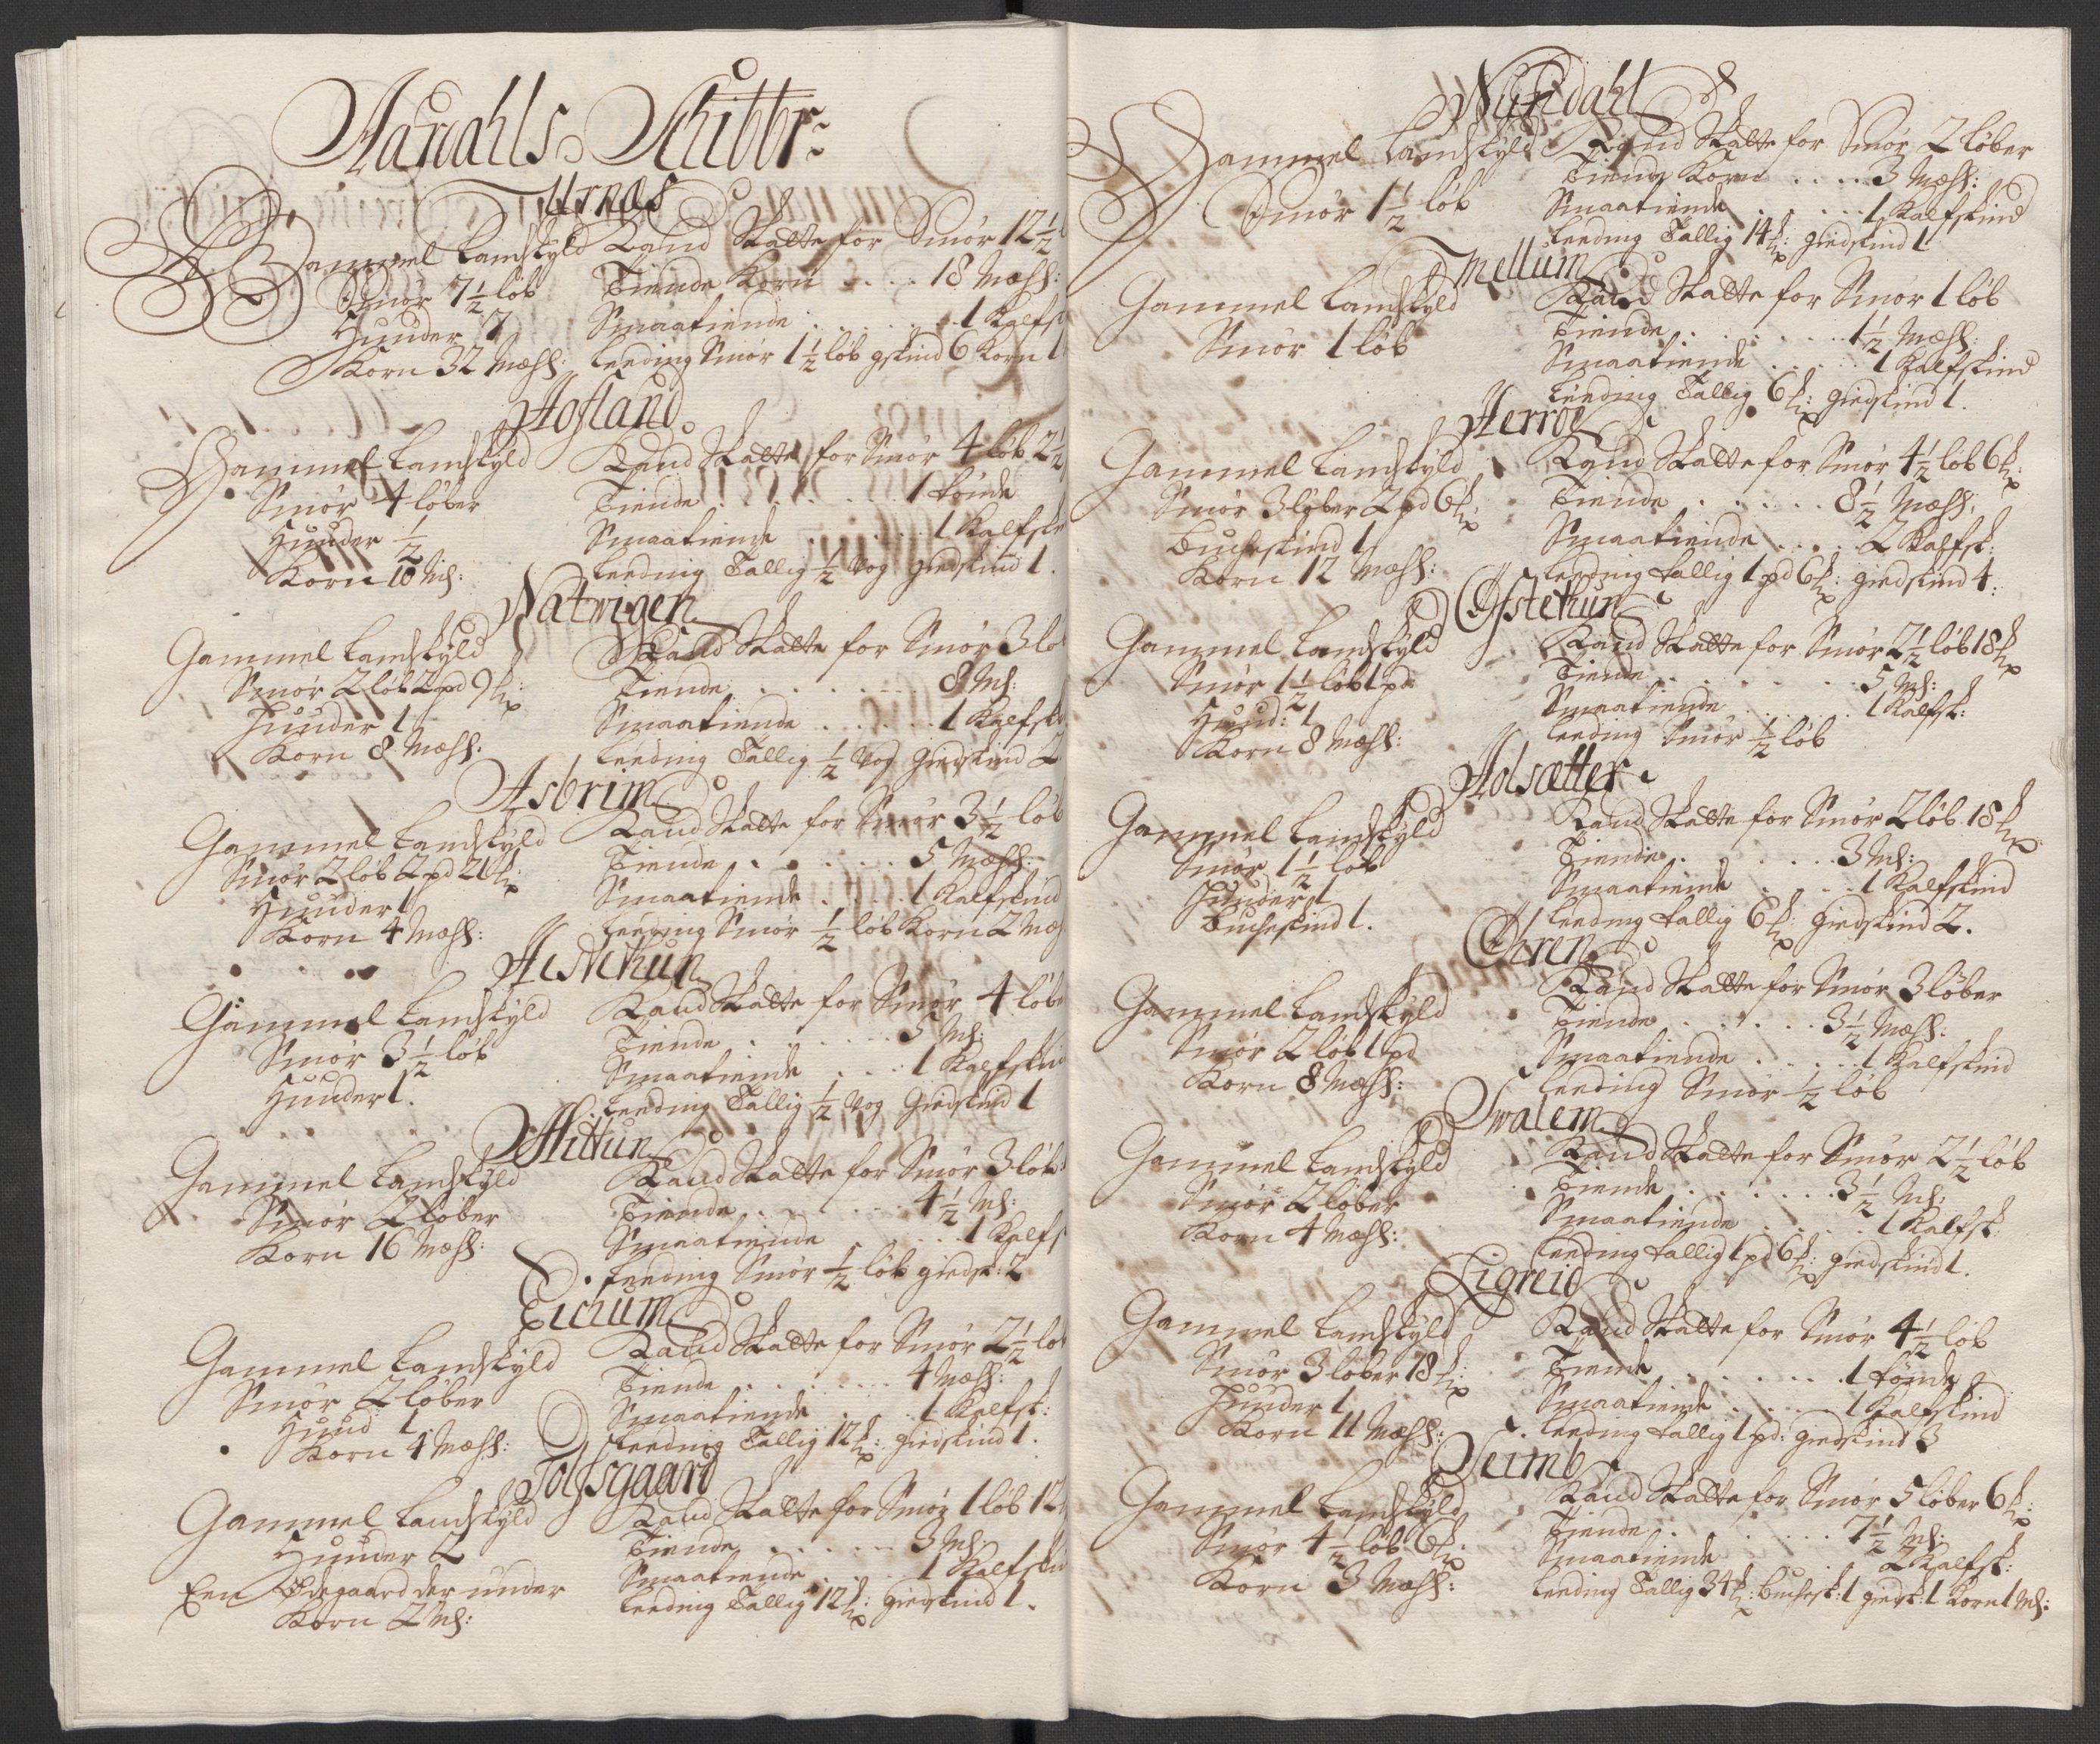 Aardahls Schibbr:
Urnæs
Gammel Landskyld
Smør 7½ løb
Huuder 7
Korn 32 Mæhl:
Raud Skatte for Smør 12½
Tiende Korn . . . . 18 Mæhl:
Smaatiende . . . . . 1 Kalfs
Leeding Smør 1½ løb gskind 6 Korn 1
Hofland
Gammel Landskyld
Smør 4 løber
Huuder ½
Korn 10 Ml:
Raud Skatte for Smør 4 løb 2½
Tiende . . . . . 1 tønde
Smaatiende . . . . . 1 Kalfski
Leeding Tallig ½ Vog giedskind 1.
Natwigen
Gammel Landskyld
Smør 2 løb 2 pd 9 ℔:
Huuder 1
Korn 8 Mæhl:
Raud Skatte for Smør 3 lø
Tiende . . . . . 8 Ml:
Smaatiende . . . . . 1 Kalfsk
Leeding Tallig ½ Vog Giedskind 2
Asbrim
Gammel Landskyld
Smør 2 løb 2 pd 21 ℔:
Huuder 1
Korn 4 Mæhl:
Raud Skatte for Smør 3½ løb
Tiende . . . . . 5 Mæhl:
Smaatiende . . . . 1 Kalfskind
Leeding Smør ½ løb Korn 2 Mæ
Hestethun
Gammel Landskyld
Smør 3½ løb
Huuder 1.
Raud Skatte for Smør 4 løbe
Tiende . . . . . 5 Ml:
Smaatiende . . . 1 Kalfskin
Leeding Tallig ½ Vog Giedskind 1
Mittun
Gammel Landskyld
Smør 2 løber
Korn 16 Mæhl:
Raud Skatte for Smør 3 løb
Tiende . . . . . 4½ Ml:
Smaatiende . . . . . 1 Kalfs
Leeding Smør ½ løb giedsk: 2
Eichum
Gammel Landskyld
Smør 2 løber
Huud 1.
Korn 4 Mæhl:
Raud Skatte for Smør 2½ lø
Tiende . . . . . 4 Mæhl:
Smaatiende . . . . 1 Kalfsk:
Leeding Tallig 12 ℔: giedskind 1.
Tolfsgaard
Gammel Landskyld
Huuder 2
Een Ødegaard der under
Korn 2 Ml:
Raud Skatte for Smør 1 løb 12
Tiende . . . . . 3 Ml:
Smaatiende . . . . 1 Kalfskin
Leeding Tallig 12 ℔: giedskind 1.
Nundahl
Gammel Landskyld
Smør 1½ løb
Raud Skatte for Smør 2 løber
Tiende Korn . . . . 3 Mæhl:
Smaatiende . . . . . 1 Kalfskind
Leeding Tallig 14 ℔: giedskind 1
Mellum
Gammel Landskyld
Smør 1 løb
Raud Skatte for Smør 1 løb
Tiende . . . . . 1½ Mæhl:
Smaatiende . . . . . 1 Kalfskind
Leeding Tallig 6 ℔: giedskind 1.
Herroe
Gammel Landskyld
Smør 3 løber 2 pd 6 ℔:
Bucheskind 1
Korn 12 Mæhl:
Raud Skatte for Smør 4½ løb 6 ℔:
Tiende . . . . . 8½ Mæhl:
Smaatiende . . . . 2 Kalfsk:
Leeding tallig 1 pd 6 ℔: giedskind 4:
Ofstethun
Gammel Landskyld
Smør 1½ løb 1 pd
Huud: 1
Korn 8 Mæhl:
Raud Skatte for Smør 2½ løb 18 ℔
Tiende . . . . . 5 Ml:
Smaatiende . . . . . 1 Kalfsk:
Leeding Smør ½ løb
Holsætter
Gammel Landskyld
Smør 1½ løb
Huuder 1
Bucheskind 1.
Raud Skatte for Smør 2 løb 18 ℔:
Tiende . . . . . 3 Ml:
Smaatiende . . . . 1 Kalfskind
Leeding tallig 6 ℔: Giedskind 2.
Ohren
Gammel Landskyld
Smør 2 løb 1 pd
Korn 8 Mæhl:
Raud Skatte for Smør 3 løber
Tiende . . . . . 3½ Mæhl:
Smaatiende . . . . . 1 Kalfskind
Leeding Smør ½ løb
Swalem
Gammel Landskyld
Smør 2 løber
Korn 4 Mæhl:
Raud Skatte for Smør 2½ løb
Tiende . . . . . 3½ Ml:
Smaatiende . . . . . 1 Kalfsk
Leeding tallig 1 pd 6 ℔: giedskind 1.
Ligreid
Gammel Landskyld
Smør 3 løber 18 ℔:
Huuder 1
Korn 11 Mæhl:
Raud Skatte for Smør 4½ løb
Tiende . . . . . 1 tønde
Smaatiende . . . . . 1 Kalfskind
Leeding tallig 1 pd: giedskind 3
Seimb
Gammel Landskyld
Smør 4½ løb 6 ℔:
Korn 3 Mæhl:
Raud Skatte for Smør 5 løber 6 ℔:
Tiende . . . . . 7½ Ml:
Smaatiende . 2 Kalfsk:
Leeding Tallig 34 ℔: Buchesk: 1 giedsk: 1 Korn 1 Ml: